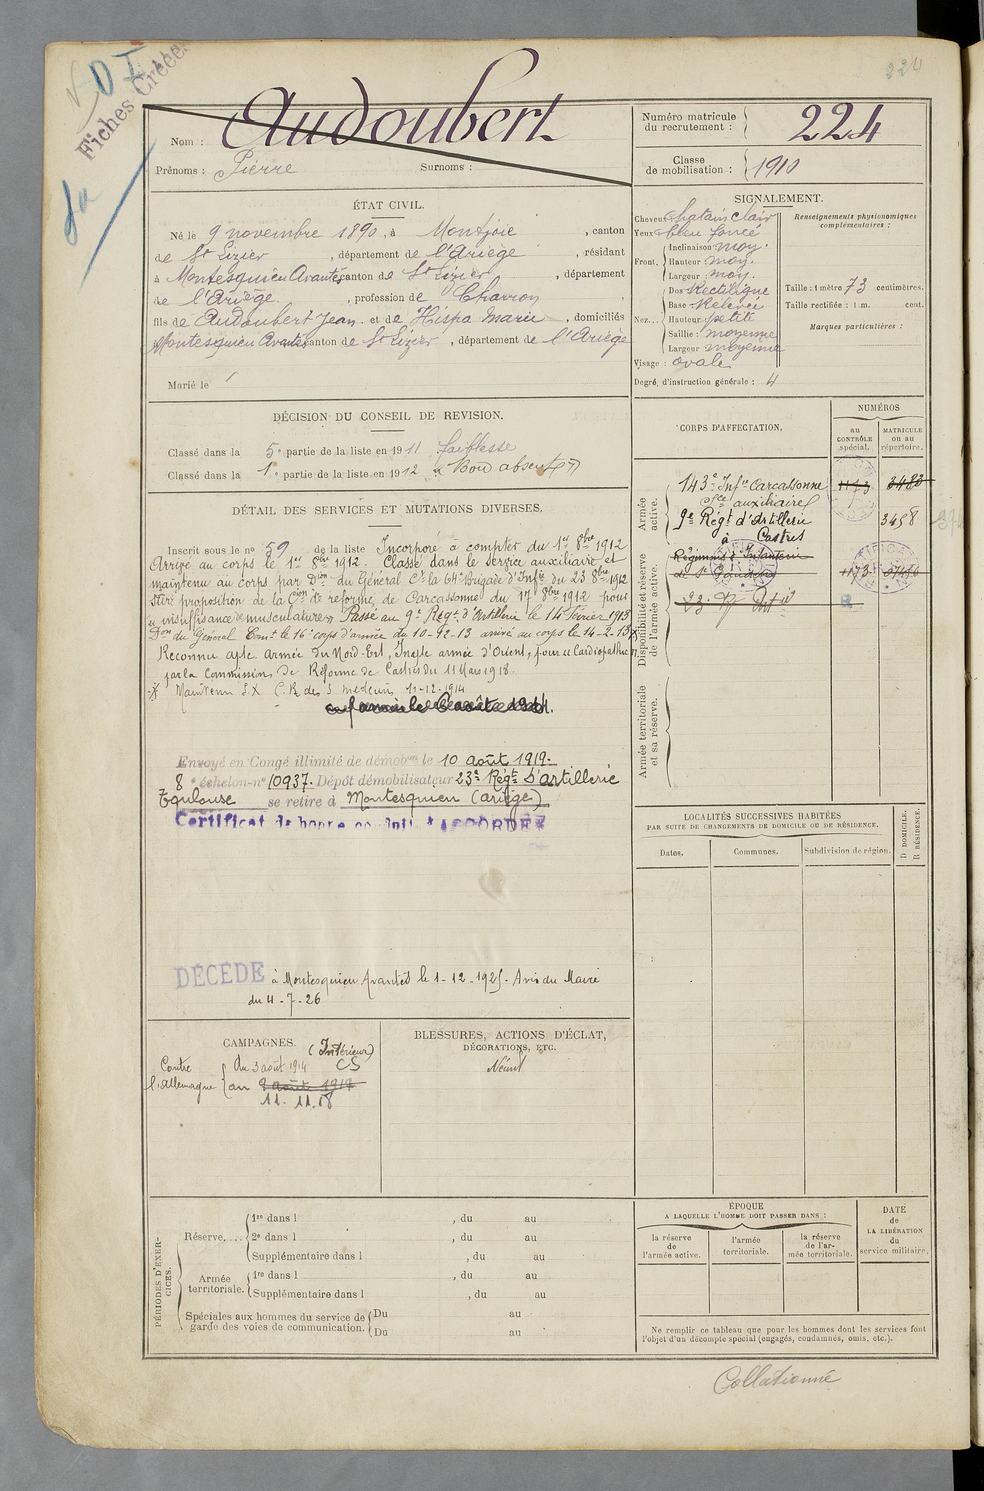 224
Fiches Créées
Nom : Audoubert
Prénoms : Pierre Surnoms :
Numéro matricule
du recrutement : 224
Classe
de mobilisation : 1910
ÉTAT CIVIL.
Né le 9 novembre 1890, à Montjoie, canton
de St Lizier, département de l'Ariège, résidant
à Montesquieu Avantès canton de St Lizier, département
de l'Ariège, profession de Charron
fils de Audoubert Jean et de Hispa Marie, domiciliés
Montesquieu Avantès canton de St Lizier, département de l'Ariège
Marié le
SIGNALEMENT.
Cheveux chatain clair
Yeux bleu foncé
Front. Inclinaison moy.
Hauteur moy.
Largeur moy.
Nez... Dos Rectiligne
Base Relevée
Hauteur petite
Saillie : moyenne
Largeur moyenne
Visage : ovale
Degré d'instruction générale : 4
Renseignements physionomiques
complémentaires :
Taille : 1 mètre 73 centimètres.
Taille rectifiée : 1 m. cent.
Marques particulières :
DÉCISION DU CONSEIL DE REVISION.
Classé dans la 5e partie de la liste en 1911 faiblesse
Classé dans la 1e partie de la liste en 1912 Bon absent
DÉTAIL DES SERVICES ET MUTATIONS DIVERSES.
Inscrit sous le no 59 de la liste Incorporé à compter du 1er 8bre 1912
Arrivé au corps le 1er 8bre 1912. Classé dans le service auxiliaire et
maintenu au corps par Don du Général Ct la 64e Brigade d'Infie du 23 8bre 1912
Sur proposition de la Con de réforme de Carcassonne du 17 8bre 1912 pour
insuffisance musculature Passé au 9e Régt d'Artillerie le 14 février 1913
Don du Général Comt le 16e corps d'armée du 10-92-13 arrivé au corps le 14-2-13
Reconnu apte armée du Nord-Est, Inapte armée d'Orient, pour Cardiopathie
par la Commission de Réforme de Castres du 11 Mars 1918
Maintenu S.X C.R. des 3 médecins 11-12-1914
Envoyé en Congé illimité de démobon le 10 août 1919.
8e échelon-no 10937. Dépôt démobilisateur 23e Régt d'artillerie
Toulouse se retire à Montesquieu (ariège)
Certificat de bonne conduite ACCORDÉ
DÉCÉDÉ à Montesquieu Avantès le 1-12-1925. Avis du Maire
du 4-7-26
CORPS D'AFFECTATION.
NUMÉROS
au
CONTRÔLE
spécial.
MATRICULE
ou au
répertoire.
Armée
active.
143e Infie Carcassonne
sce auxiliaire
3483
9e Régt d'Artillerie
à Castres
3458
Disponibilité et réserve
de l'armée active.
Régiment d'Infanterie
de St Gaudens
Armée territoriale
et sa réserve.
LOCALITÉS SUCCESSIVES HABITÉES
PAR SUITE DE CHANGEMENTS DE DOMICILE OU DE RÉSIDENCE.
Dates. Communes. Subdivision de région.
D DOMICILE.
R RÉSIDENCE.
CAMPAGNES.
(Intérieur)
CS
Contre
l'Allemagne
Du 3 août 1914
au
11.11.18
BLESSURES, ACTIONS D'ÉCLAT,
DÉCORATIONS, ETC.
Néant
PÉRIODES D'EXER-
CICES.
Réserve.... 1re dans l , du au
2e dans l , du au
Supplémentaire dans l , du au
Armée
territoriale. 1re dans l , du au
Supplémentaire dans l , du au
Spéciales aux hommes du service de
garde des voies de communication. Du au
Du au
ÉPOQUE
A LAQUELLE L'HOMME DOIT PASSER DANS :
la réserve
de
l'armée active.
l'armée
territoriale.
la réserve
de l'ar-
mée territoriale.
DATE
de
LA LIBÉRATION
du
service militaire.
Ne remplir ce tableau que pour les hommes dont les services font
l'objet d'un décompte spécial (engagés, condamnés, omis, etc.).
Collationné